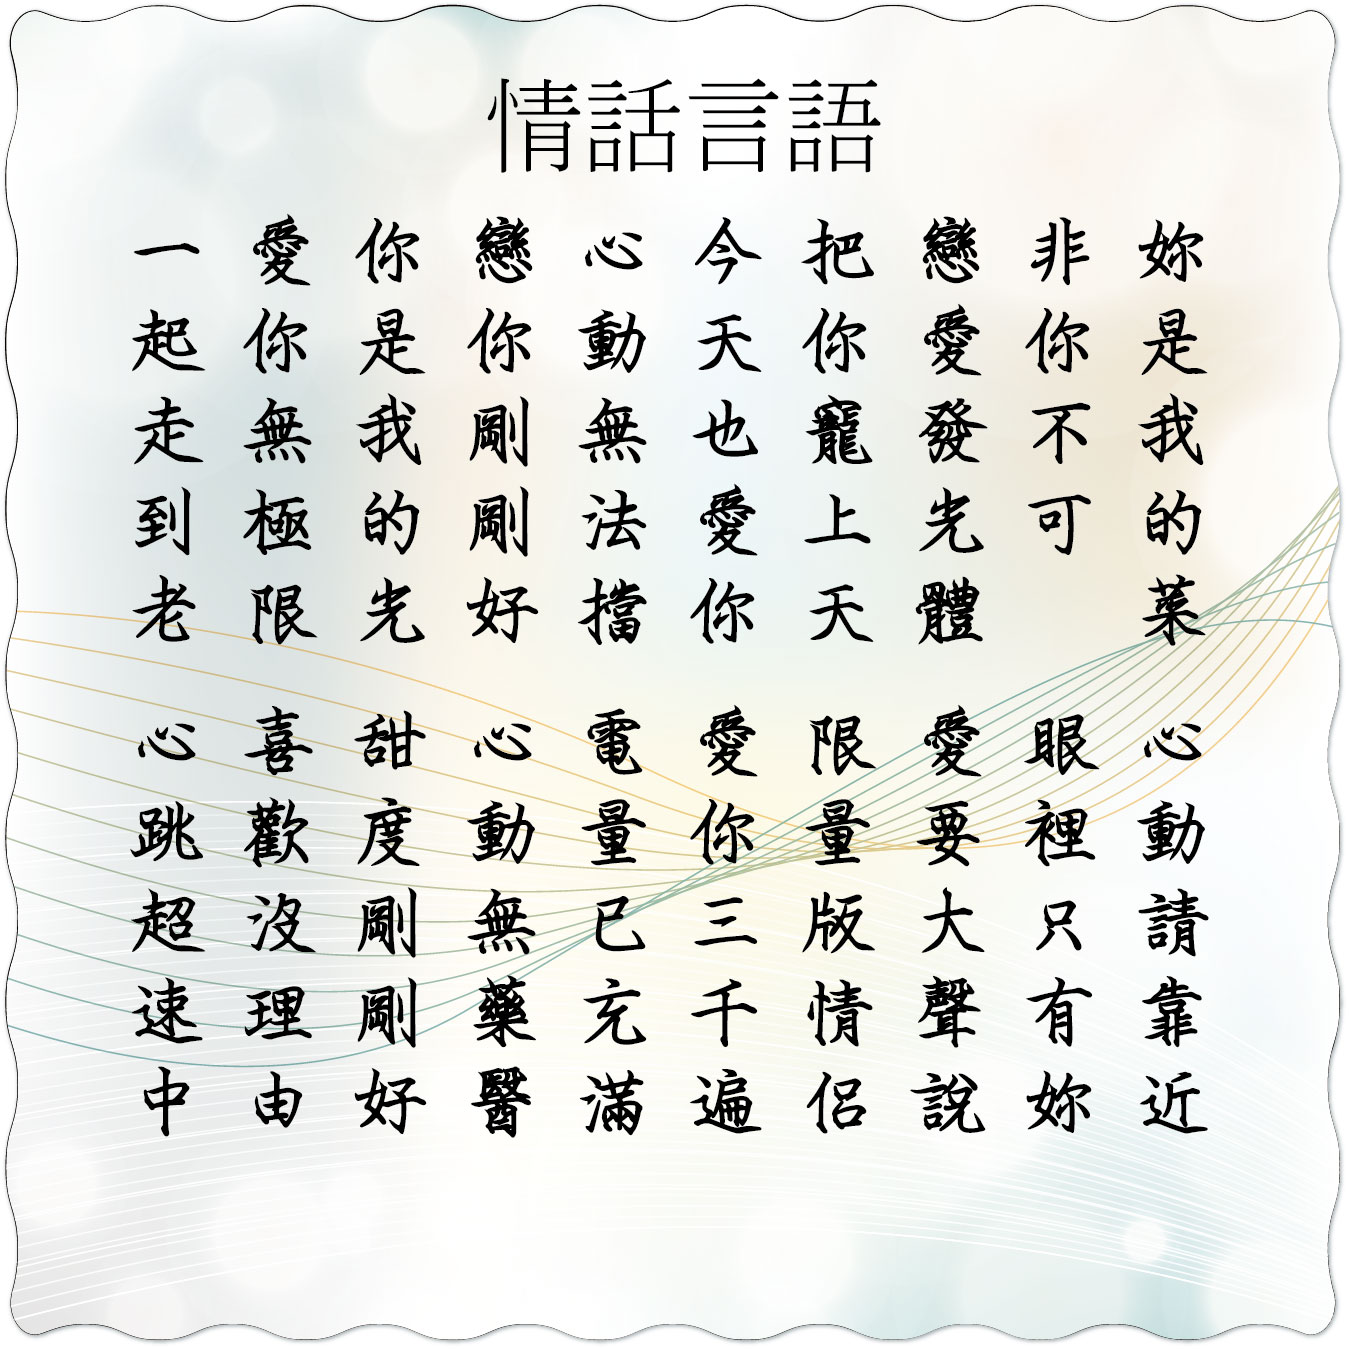 情話言語
妳是我的菜
非你不可
戀愛發光體
把你寵上天
今天也愛你
心動無法擋
戀你剛剛好
你是我的光
愛你無極限
一起走到老
心動請靠近
眼裡只有妳
愛要大聲說
限量版情侶
愛你三千遍
電量已充滿
心動無藥醫
甜度剛剛好
喜歡沒理由
心跳超速中